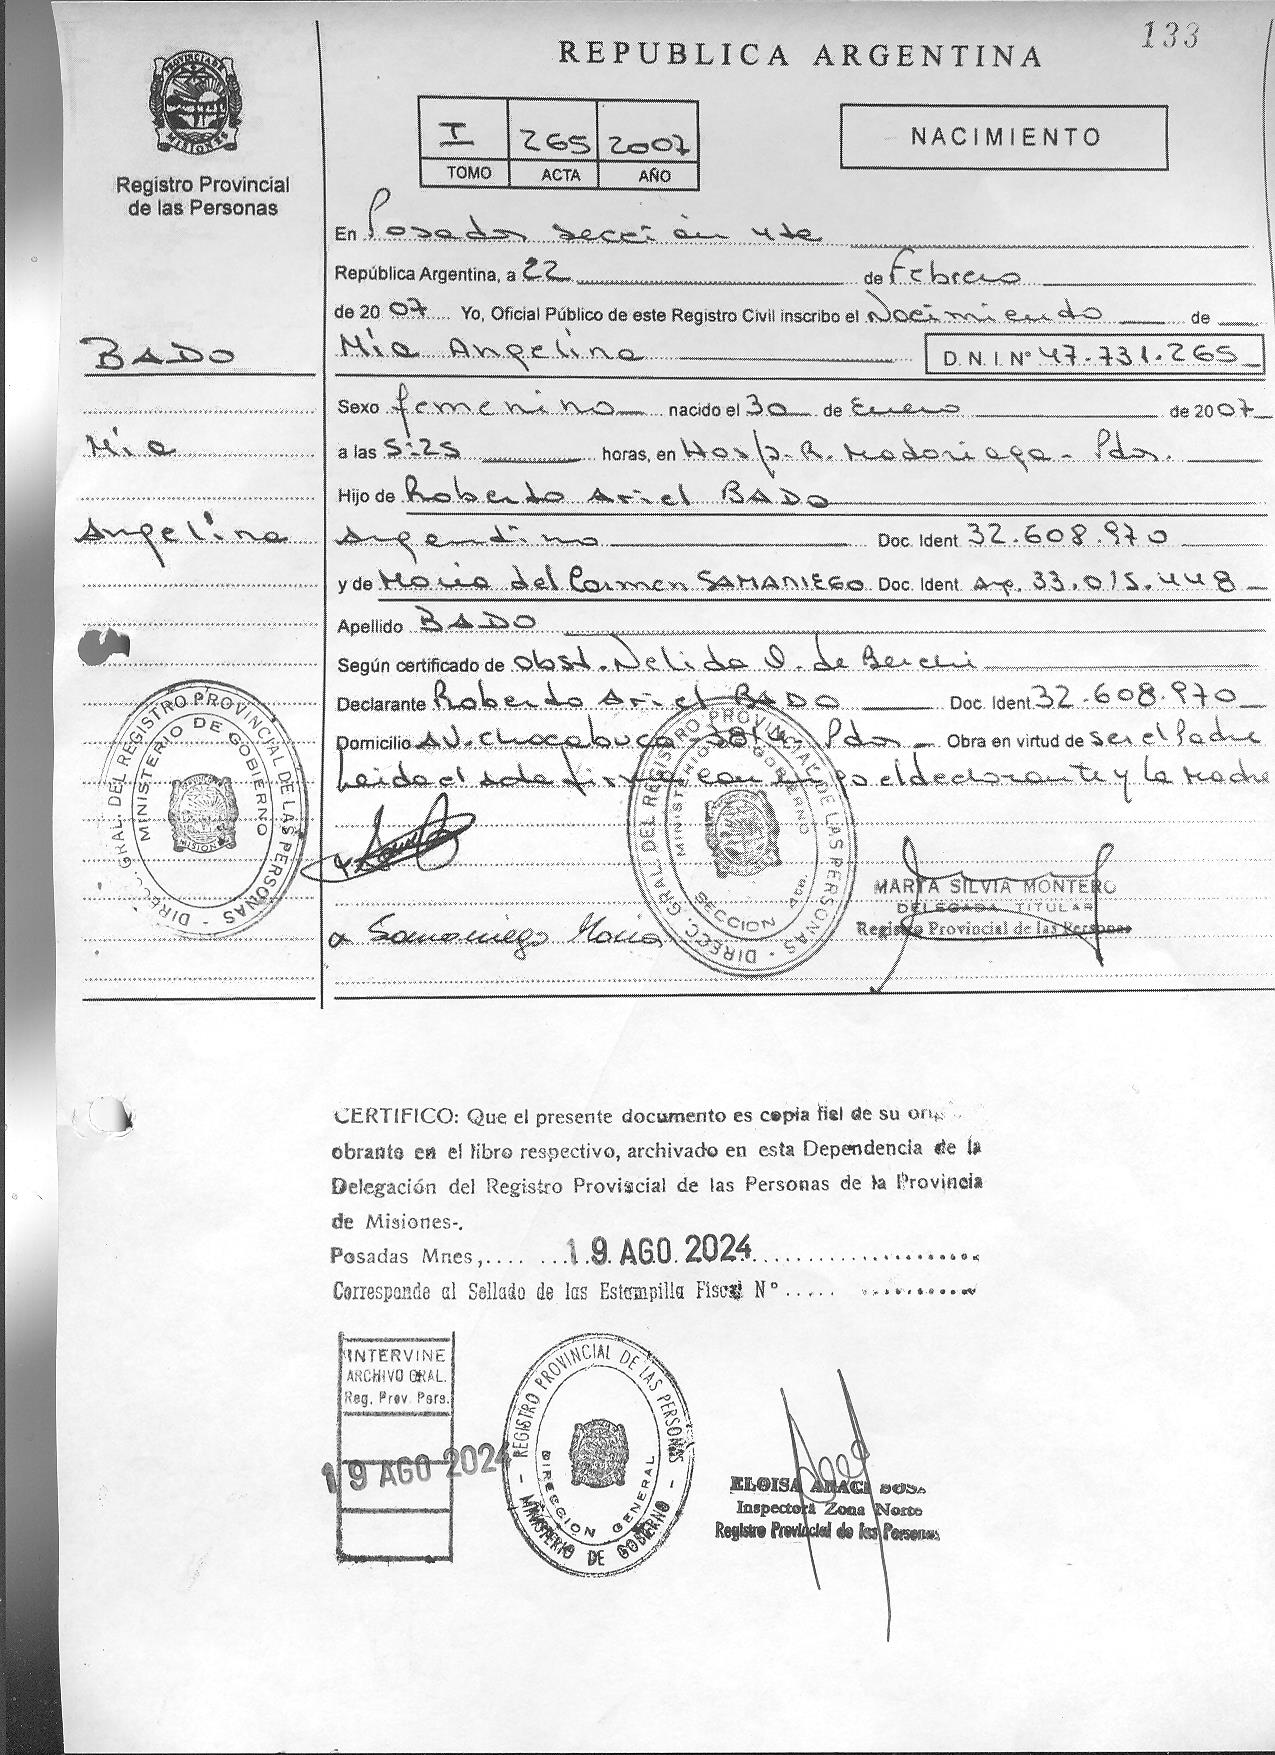 133
REPUBLICA ARGENTINA
PROVINCIA DE
MISIONES
Registro Provincial
de las Personas
I 265 2007
TOMO ACTA AÑO
NACIMIENTO
En Posadas sección 4ta
República Argentina, a 22 de Febrero
de 2007 Yo, Oficial Público de este Registro Civil inscribo el Nacimiento de
BADO
Mía Angelina D.N.I. Nº 47.731.265
Sexo femenino nacido el 30 de Enero de 2007
Mía
a las 5:25 horas, en Hosp. R. Madariaga - Pdas.
Hijo de Roberto Ariel BADO
Angelina
Argentino Doc. Ident 32.608.970
y de María del Carmen SAMANIEGO Doc. Ident. Arg. 33.015.448
Apellido BADO
Según certificado de Obst. Nelida O. de
Declarante Roberto Ariel BADO Doc. Ident. 32.608.970
Domicilio AV. Chacabuco 3814 Pdas Obra en virtud de ser el Padre
Leida el acta firma conmigo el declarante y la Madre
DIRECC. GRAL. DEL REGISTRO PROVINCIAL DE LAS PERSONAS
MINISTERIO DE GOBIERNO
MISIONES
DIRECC. GRAL. DEL REGISTRO PROVINCIAL DE LAS PERSONAS
MINISTERIO DE GOBIERNO
SECCION 4ta.
Samaniego María
MARTA SILVIA MONTERO
DELEGADA TITULAR
Registro Provincial de las Personas
CERTIFICO: Que el presente documento es copia fiel de su orig
obrante en el libro respectivo, archivado en esta Dependencia de la
Delegación del Registro Provincial de las Personas de la Provincia
de Misiones-.
Posadas Mnes,.... ...19 AGO. 2024................
Corresponde al Sellado de las Estampilla Fiscal Nº ..... ............
INTERVINE
ARCHIVO GRAL.
Reg. Prov. Pers.
19 AGO 2024
REGISTRO PROVINCIAL DE LAS PERSONAS
DIRECCION GENERAL
MINISTERIO DE GOBIERNO
ELOISA ARACI SOSA
Inspectora Zona Norte
Registro Provincial de las Personas